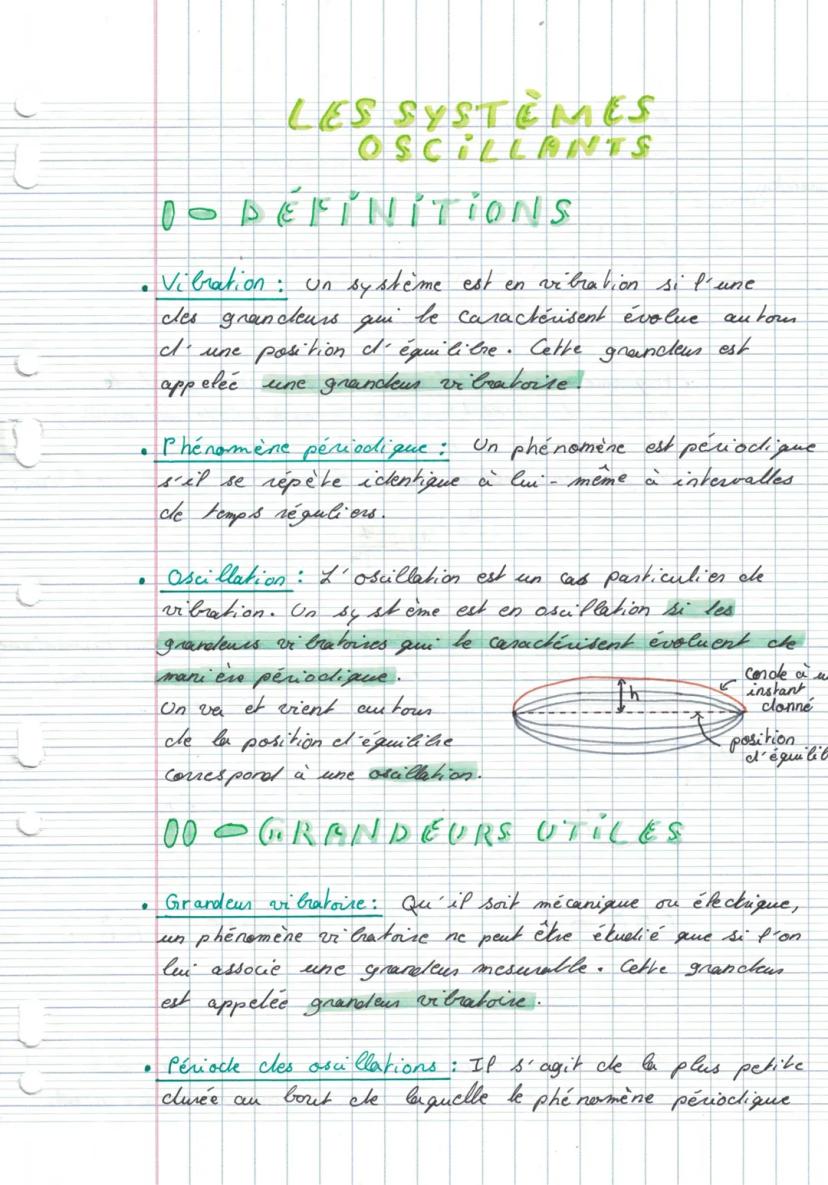 LES SYSTÈMES
OSCiLLANTS
I - DÉFiNiTiONS
• Vibration : Un système est en vibration si l'une
des grandeurs qui le caractérisent évolue autour
d'une position d'équilibre. Cette grandeur est
appelée une grandeur vibratoire.
• Phénomène périodique : Un phénomène est périodique
s'il se répète identique à lui-même à intervalles
de temps réguliers.
• Oscillation : L'oscillation est un cas particulier de
vibration. Un système est en oscillation si les
grandeurs vibratoires qui le caractérisent évoluent de
manière périodique.
Un va et vient autour
de la position d'équilibre
correspond à une oscillation.
h
corde à u
instant
donné
position
d'équilib
II - GRANDEURS UTiLES
• Grandeur vibratoire : Qu'il soit mécanique ou électrique,
un phénomène vibratoire ne peut être étudié que si l'on
lui associe une grandeur mesurable. Cette grandeur
est appelée grandeur vibratoire.
• Période des oscillations : Il s'agit de la plus petite
durée au bout de laquelle le phénomène périodique